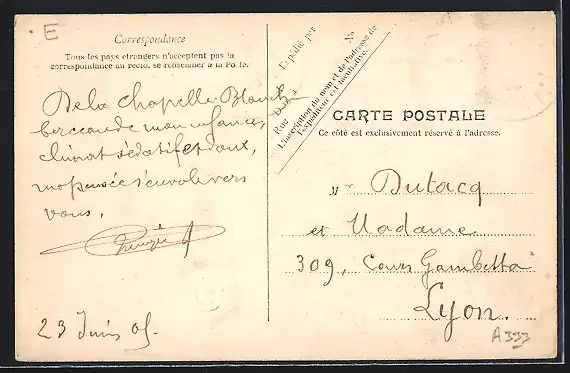 E
Correspondance
Tous les pays étrangers n'acceptent pas la
correspondance au recto, se renseigner à la Poste.
De la Chapelle Blanche
berceau de mon enfance,
climat sédatif et doux,
ma pensée s'envole vers
vous.
23 Juin 05.
Expédié par
No
Rue
L'inscription du nom et de l'adresse de
l'expéditeur est facultative.
CARTE POSTALE
Ce côté est exclusivement réservé à l'adresse.
Mr Dutacq
et Madame
309, Cours Gambetta
Lyon.
A333